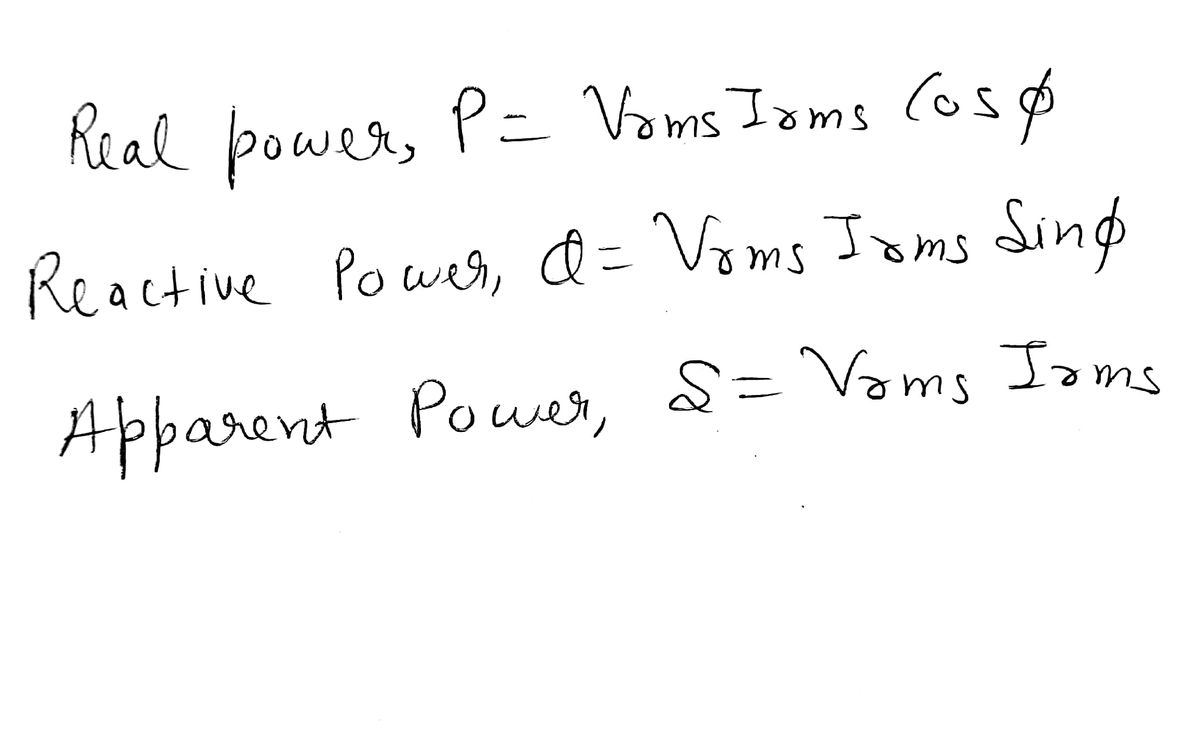 Real power, P = Vrms Irms Cos ϕ
Reactive Power, Q = Vrms Irms Sinϕ
Apparent Power, S = Vrms Irms